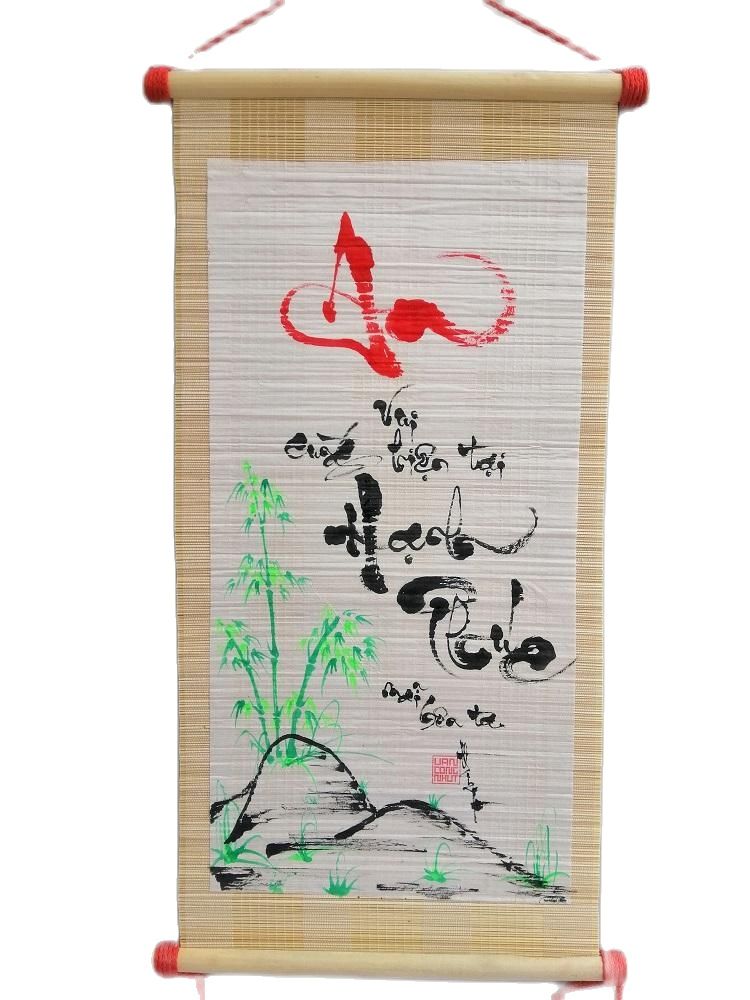 An
Vui
cuộc hiện tại
Hạnh
Phúc
mãi
bên ta
VAN
CONG
NHUT